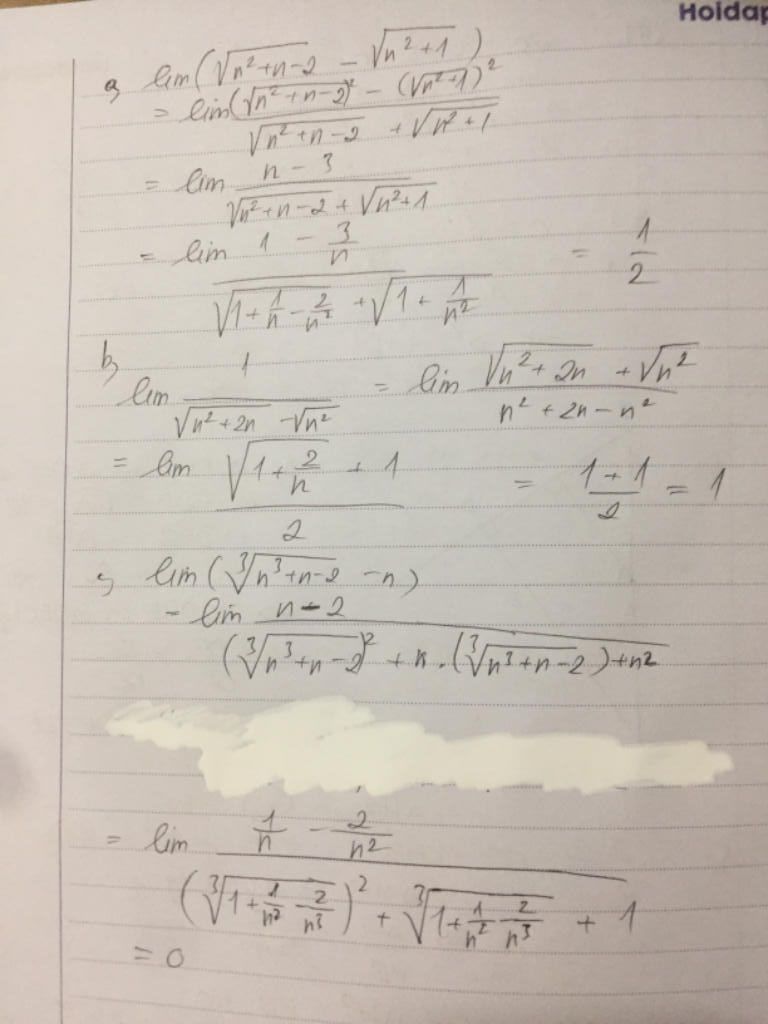 Hoidap
a, lim(√(n²+n-2) - √(n²+1))
= lim ((√(n²+n-2))² - (√(n²+1))²)/(√(n²+n-2) + √(n²+1))
= lim (n - 3)/(√(n²+n-2) + √(n²+1))
= lim (1 - 3/n)/(√(1 + 1/n - 2/n²) + √(1 + 1/n²)) = 1/2
b, lim 1/(√(n²+2n) - √n²) = lim (√(n²+2n) + √n²)/(n²+2n-n²)
= lim (√(1 + 2/n) + 1)/2 = (1+1)/2 = 1
c, lim(∛(n³+n-2) - n)
= lim (n-2)/((∛(n³+n-2))² + n.(∛(n³+n-2)) + n²)
= lim (1/n - 2/n²)/((∛(1 + 1/n² - 2/n³))² + ∛(1 + 1/n² - 2/n³) + 1)
= 0